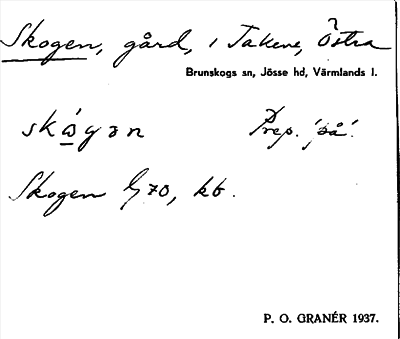 Skogen, gård, i Takene, Östra
Brunskogs sn, Jösse hd, Värmlands l.
skɷ́gən Prep. 'på'.
Skogen G 70, kb.
P. O. GRANÉR 1937.